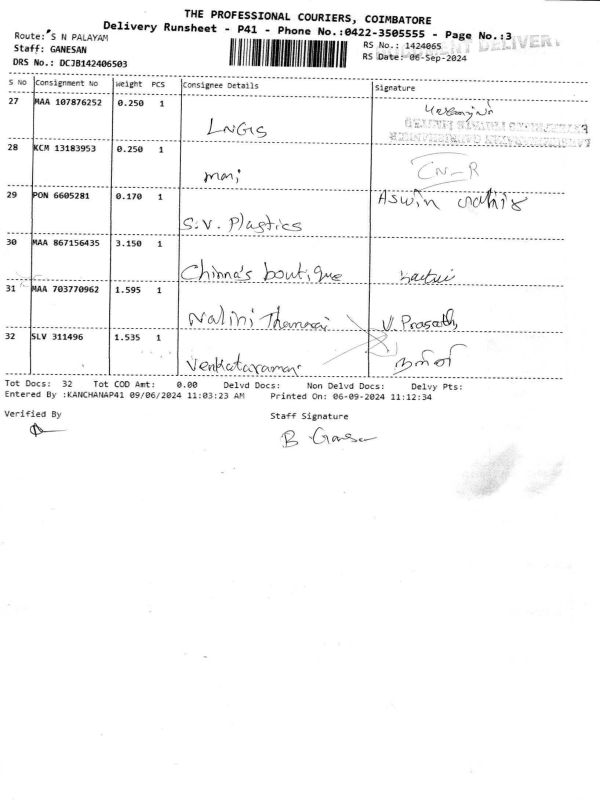 THE PROFESSIONAL COURIERS, COIMBATORE
Delivery Runsheet - P41 - Phone No.:0422-3505555 - Page No.:3
Route: S N PALAYAM
RS No.: 1424065
Staff: GANESAN
RS Date: 06-Sep-2024
DRS No.: DCJB142406503
S No Consignment No Weight PCS Consignee Details Signature
27 MAA 107876252 0.250 1
28 KCM 13183953 0.250 1
mani
29 PON 6605281 0.170 1 Aswin
S.V. Plastics
30 MAA 867156435 3.150 1
Chinna's boutique
31 MAA 703770962 1.595 1
Nalini V. Prasath
32 SLV 311496 1.535 1
Venkataraman
Tot Docs: 32 Tot COD Amt: 0.00 Delvd Docs: Non Delvd Docs: Delvy Pts:
Entered By :KANCHANAP41 09/06/2024 11:03:23 AM Printed On: 06-09-2024 11:12:34
Verified By Staff Signature